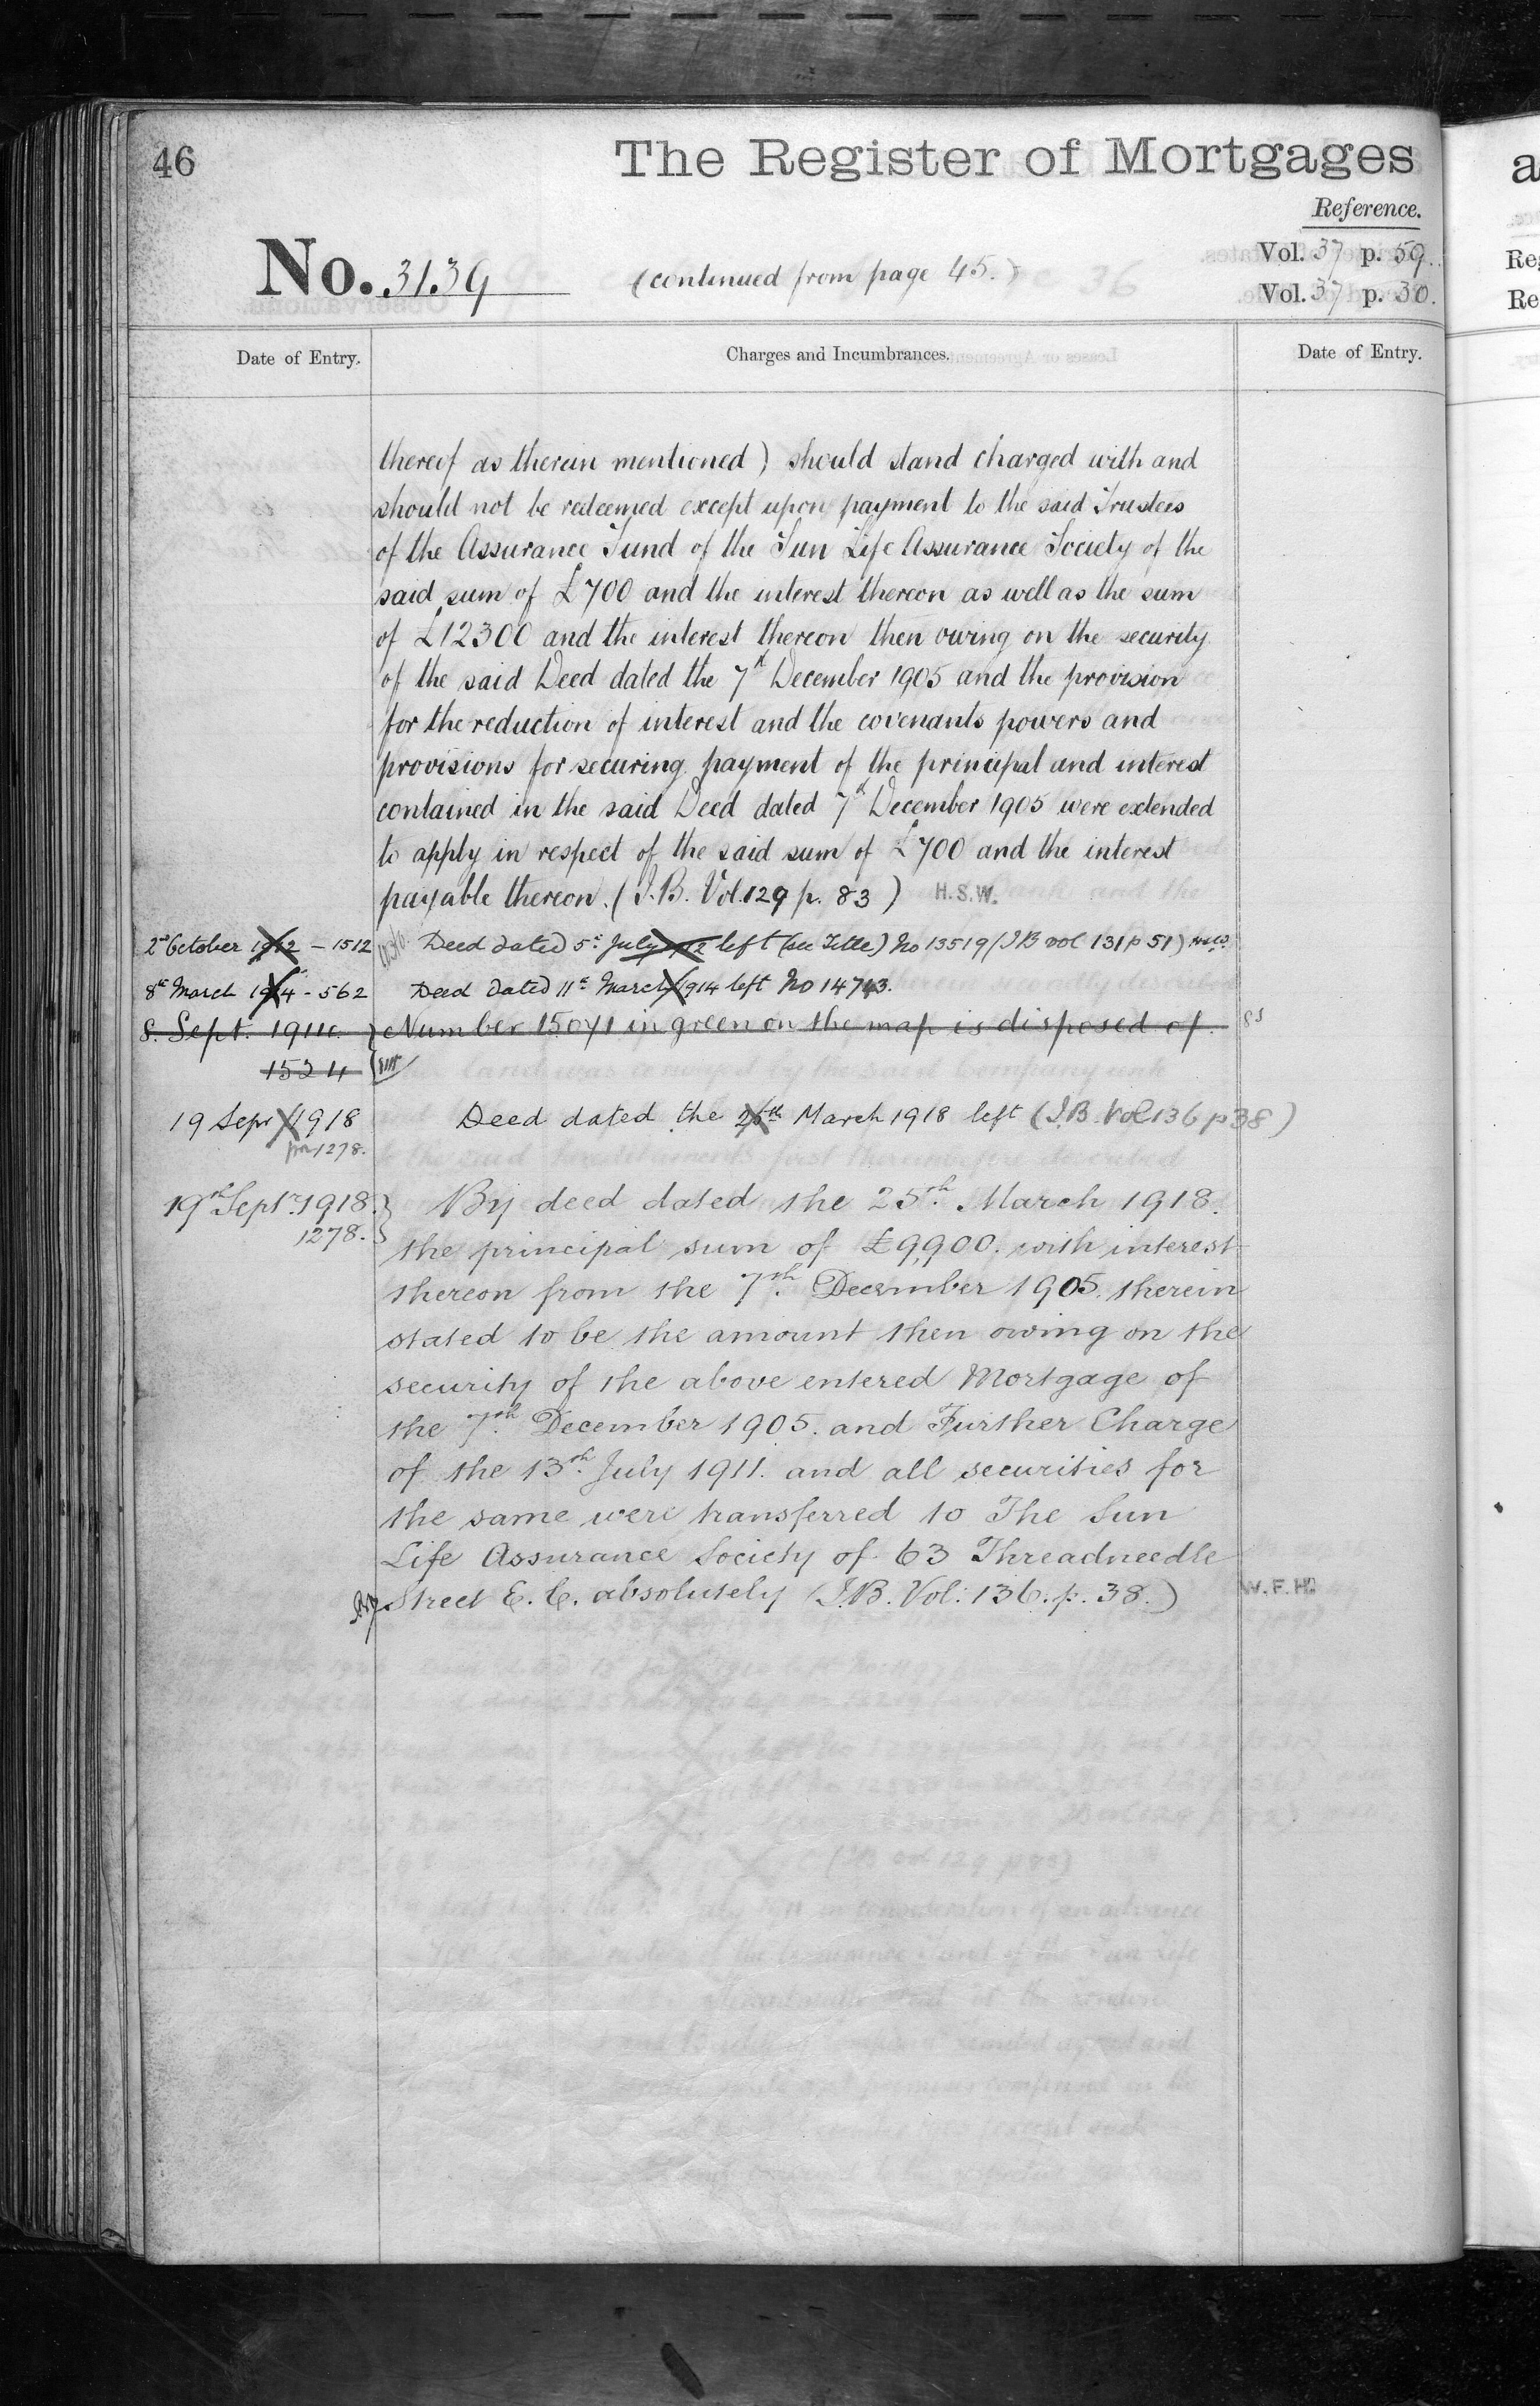 46
The Register of Mortgages
Reference.
No. 3139
(continued from page 45.)
Vol. 37 p. 59.
Vol. 37 p. 30.
Date of Entry.
Charges and Incumbrances.
Date of Entry.
thereof as therein mentioned) should stand charged with and
should not be redeemed except upon payment to the said Trustees
of the Assurance Fund of the Sun Life Assurance Society of the
said sum of £700 and the interest thereon as well as the sum
of £12300 and the interest thereon then owing on the security
of the said Deed dated the 7th December 1905 and the provision
for the reduction of interest and the covenants powers and
provisions for securing payment of the principal and interest
contained in the said Deed dated 7th December 1905 were extended
to apply in respect of the said sum of £700 and the interest
payable thereon. (I.B. Vol. 129 p. 83) H.S.W.
2nd October 1912 - 1512 Deed dated 5th July 1912 left (see Title) No 13519 (IB vol 131 p 51)
8th March 1914 - 562 Deed dated 11th March 1914 left No 14743.
8. Sept. 1914. Number 15071 in green on the map is disposed of.
1524
19 Sepr 1918 Deed dated the 25th March 1918 left (I.B. Vol 136 p 38)
1278.
19th Septr. 1918. By deed dated the 25th. March 1918.
1278.
the principal sum of £9,900. with interest
thereon from the 7th. December 1905. therein
stated to be the amount then owing on the
security of the above entered Mortgage of
the 7th. December 1905. and Further Charge
of the 13th. July 1911. and all securities for
the same were transferred to The Sun
Life Assurance Society of 63 Threadneedle
Street E.C. absolutely (I.B. Vol: 136. p. 38.)
W.F.H.
a
Re